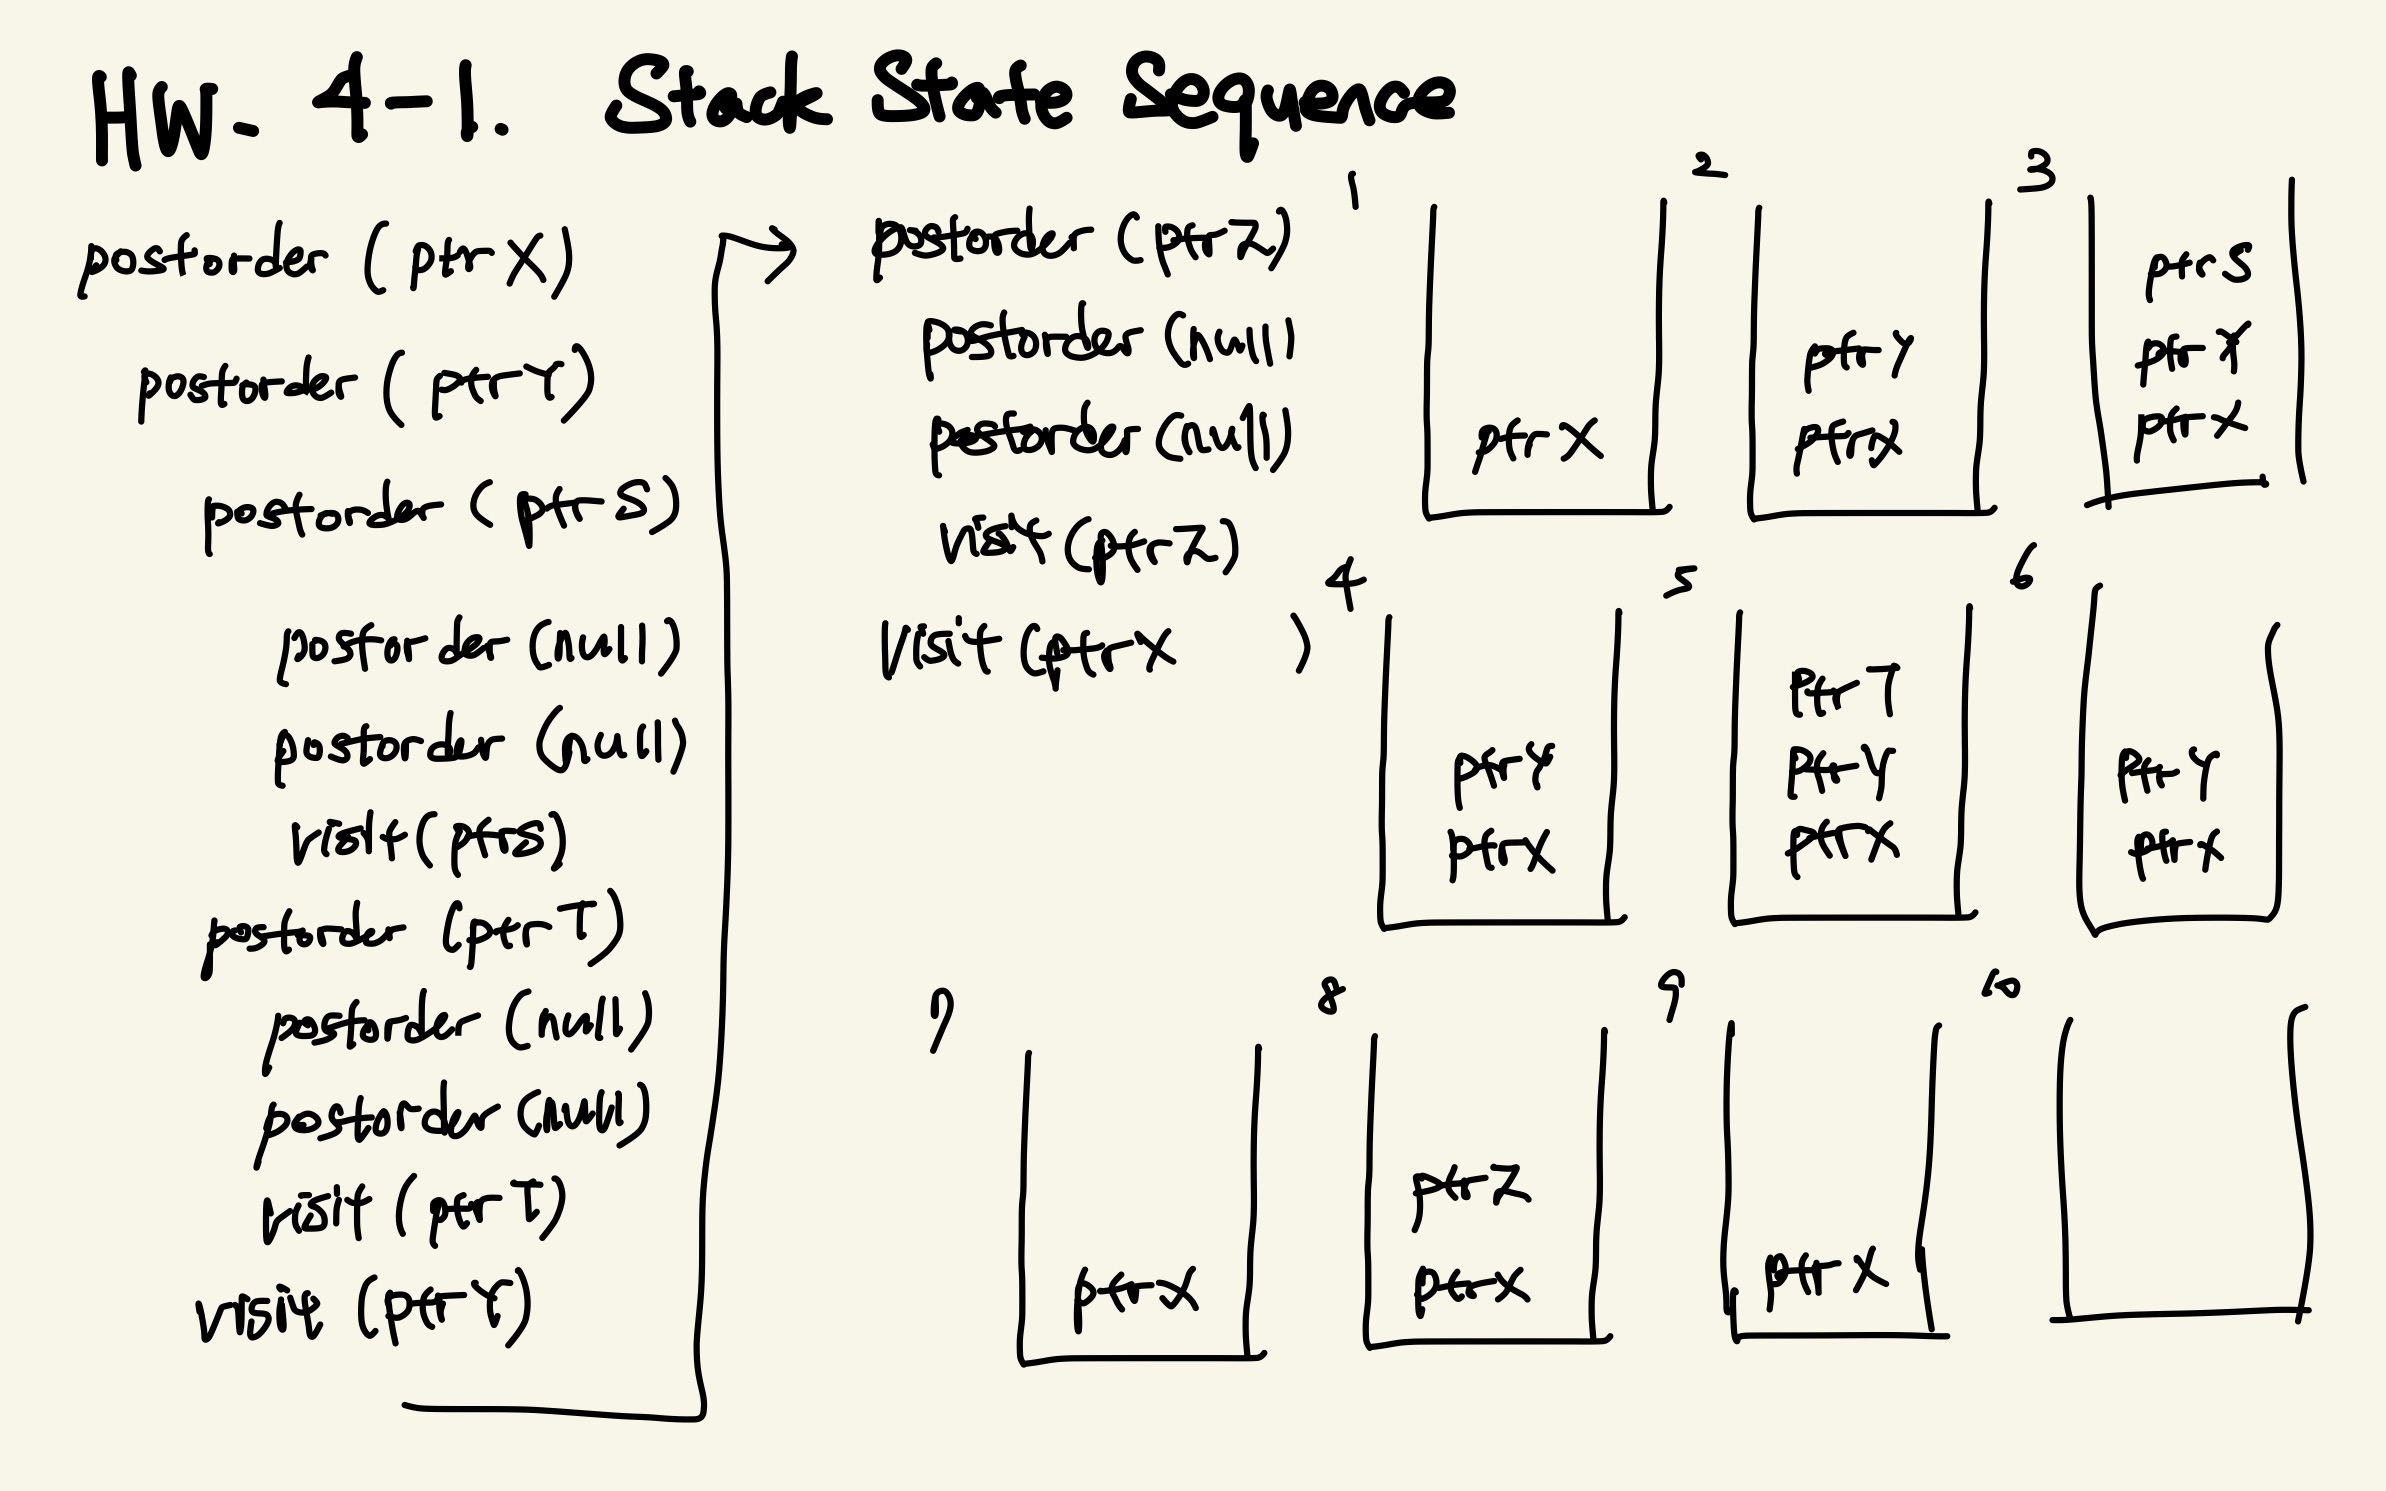 HW. 4-1. Stack State Sequence
postorder (ptr X)
postorder (ptr Y)
postorder (ptr S)
postorder (null)
postorder (null)
visit (ptr S)
postorder (ptr T)
postorder (null)
postorder (null)
visit (ptr T)
visit (ptr Y)
postorder (ptr Z)
postorder (null)
postorder (null)
visit (ptr Z)
visit (ptr X )
1
ptr X
2
ptr Y
ptr X
3
ptr S
ptr Y
ptr X
4
ptr Y
ptr X
5
ptr T
ptr Y
ptr X
6
ptr Y
ptr X
7
ptr X
8
ptr Z
ptr X
9
ptr X
10